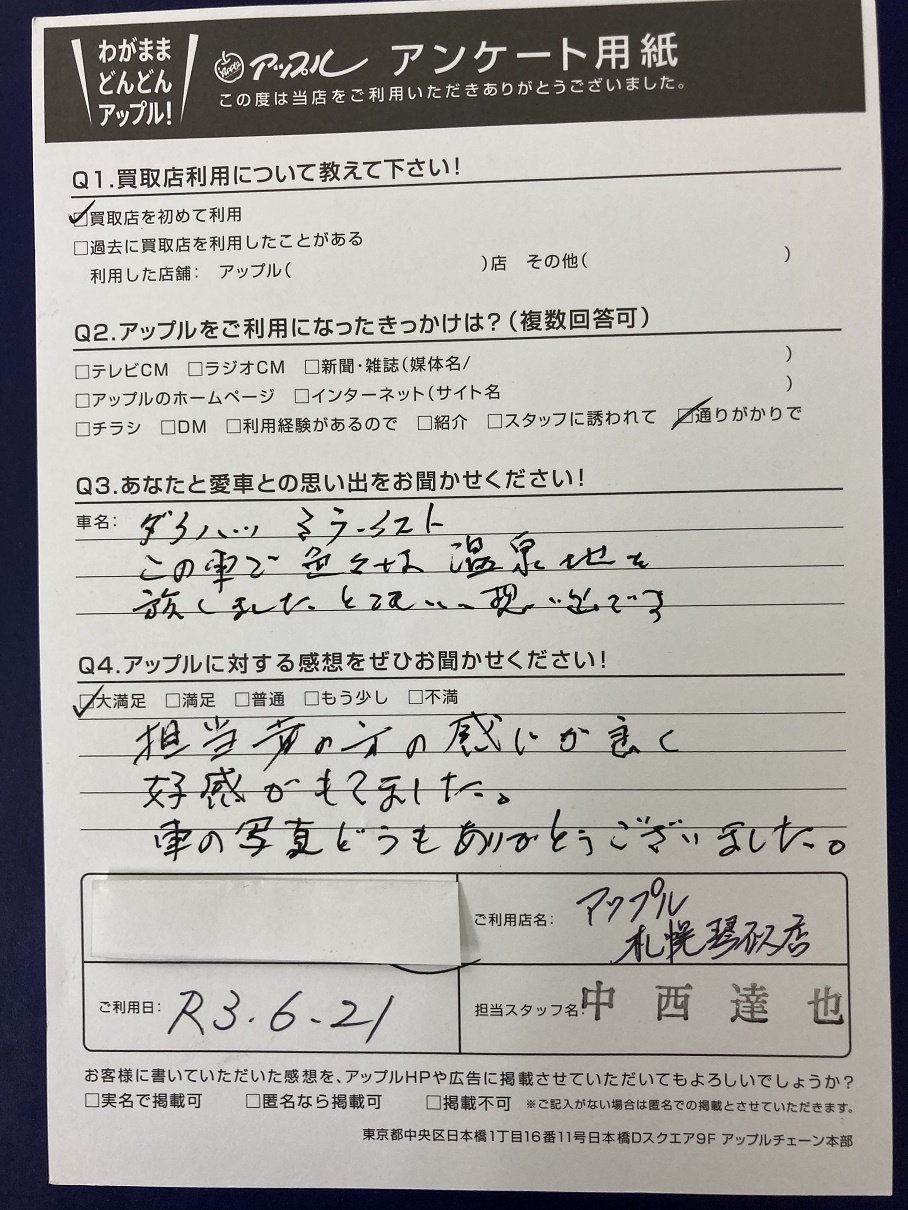 わがまま
どんどん
アップル!
アップル アンケート用紙
この度は当店をご利用いただきありがとうございました。
Q1.買取店利用について教えて下さい!
☑買取店を初めて利用
□過去に買取店を利用したことがある
利用した店舗: アップル( )店 その他( )
Q2.アップルをご利用になったきっかけは?(複数回答可)
□テレビCM □ラジオCM □新聞・雑誌(媒体名/ )
□アップルのホームページ □インターネット(サイト名 )
□チラシ □DM □利用経験があるので □紹介 □スタッフに誘われて ☑通りがかりで
Q3.あなたと愛車との思い出をお聞かせください!
車名: ダイハツ ミライースト
この車で色々な温泉地を
旅しました とてもいい思い出です
Q4.アップルに対する感想をぜひお聞かせください!
☑大満足 □満足 □普通 □もう少し □不満
担当者の方の感じが良く
好感がもてました。
車の写真どうもありがとうございました。
ご利用店名: アップル
札幌琴似店
ご利用日: R3.6.21
担当スタッフ名: 中西達也
お客様に書いていただいた感想を、アップルHPや広告に掲載させていただいてもよろしいでしょうか?
□実名で掲載可 □匿名なら掲載可 □掲載不可 ※ご記入がない場合は匿名での掲載とさせていただきます。
東京都中央区日本橋1丁目16番11号日本橋Dスクエア9F アップルチェーン本部